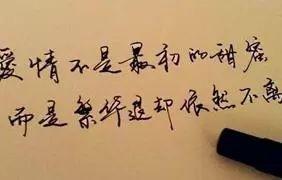 愛情不是最初的甜蜜
而是繁华退却依然不离